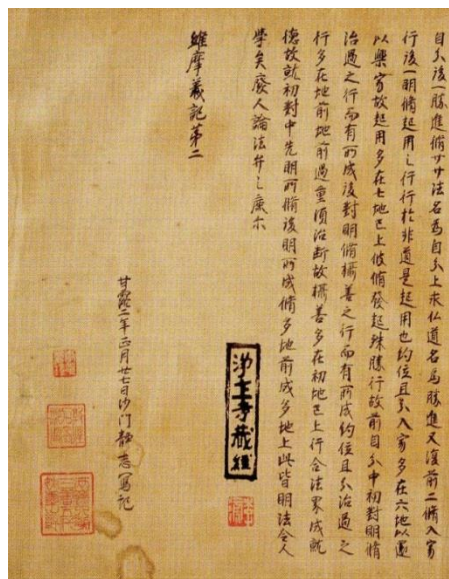 自分後一勝進脩廾廾法名為自分上求仏道名為勝進又復前二脩入寂
行後一明脩起用之行行於非道是起用也約位且分入寂多在六地以還
以樂寂故起用多在七地已上彼脩發起殊勝行故前自分中初對明脩
治過之行而有所成後對明脩攝善之行而有所成約位且分治過之
行多在地前地前過重須治斷故攝善多在初地已上行合法界成就
德故就初對中先明所脩後明所成脩多地前成多地上此皆明法令人
學矣廢人論法
維摩義記第二
甘露二年正月廿七日沙門靜志寫記
淨土寺藏經